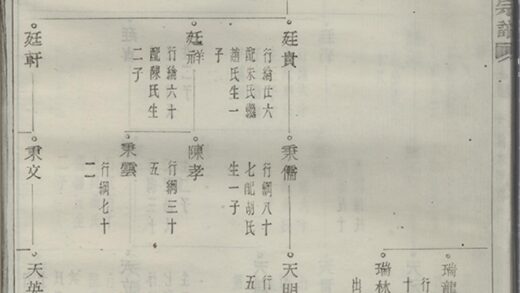 廷貴
行綸廿六
配朱氏繼
趙氏生一
子
廷祥
行綸六十
配陳氏生
二子
廷軒
秉儒
行綱八十
七配胡氏
生一子
陳孝
行綱三十
五
秉雲
行綱七十
二
秉文
瑞龍
行
十
瑞林
出
天明
行
五
天英